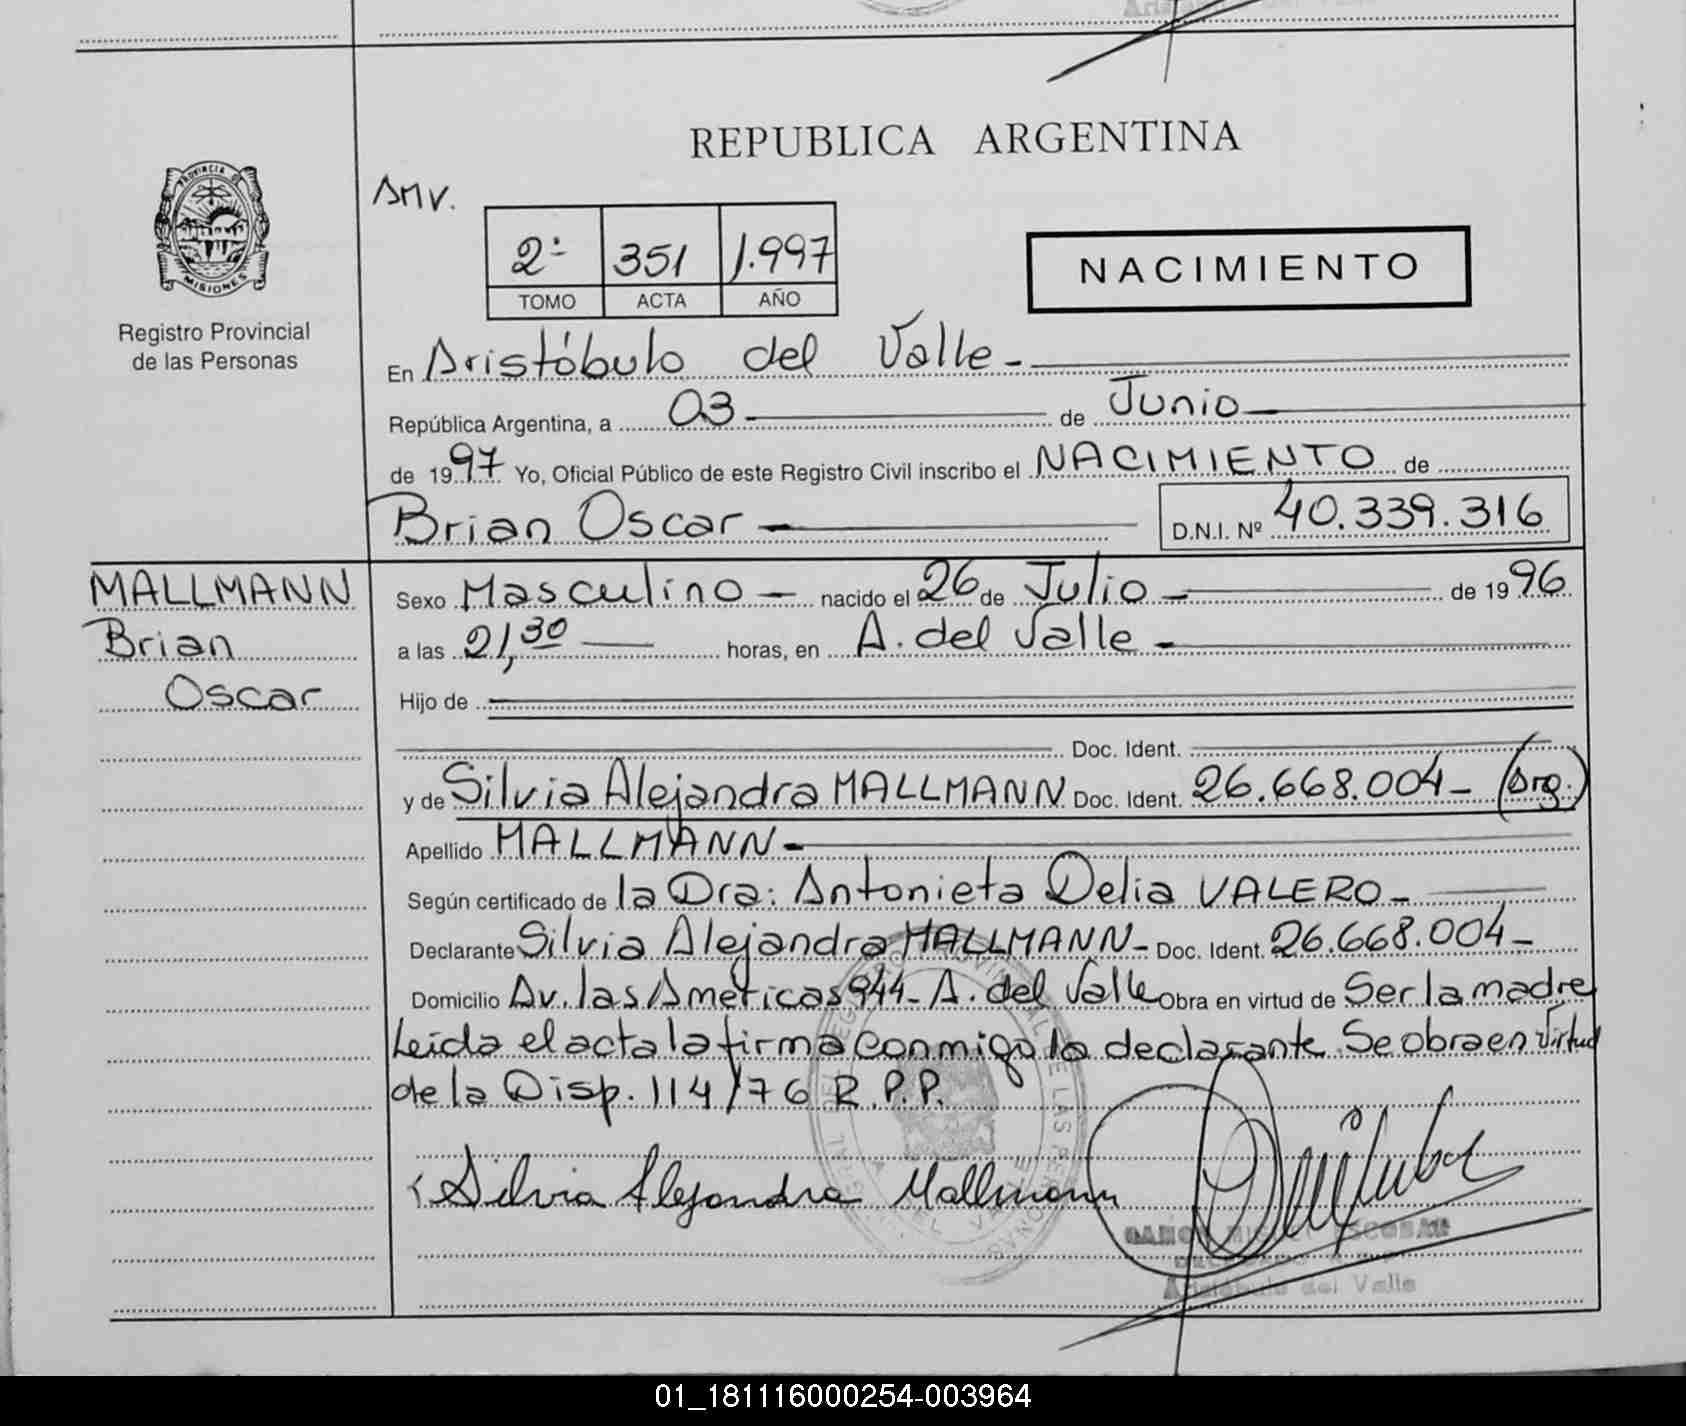 REPUBLICA ARGENTINA
PROVINCIA DE
MISIONES
Registro Provincial
de las Personas
2º 351 1.997
TOMO ACTA AÑO
NACIMIENTO
En Aristóbulo del Valle -
República Argentina, a 03 de Junio
de 1997 Yo, Oficial Público de este Registro Civil inscribo el NACIMIENTO de
Brian Oscar - D.N.I. Nº 40.339.316
MALLMANN
Brian
Oscar
Sexo Masculino - nacido el 26 de Julio - de 1996
a las 21,30 horas, en A. del Valle -
Hijo de
Doc. Ident.
y de Silvia Alejandra MALLMANN Doc. Ident. 26.668.004 - (Arg.)
Apellido MALLMANN -
Según certificado de la Dra: Antonieta Delia VALERO -
Declarante Silvia Alejandra MALLMANN - Doc. Ident. 26.668.004 -
Domicilio Av. las Américas 944 - A. del Valle Obra en virtud de Ser la madre
Leída el acta la firma conmigo la declarante. Se obra en Virtud
de la Disp. 114/76 R.P.P.
Silvia Alejandra Mallmann
Aristóbulo del Valle
01_181116000254-003964